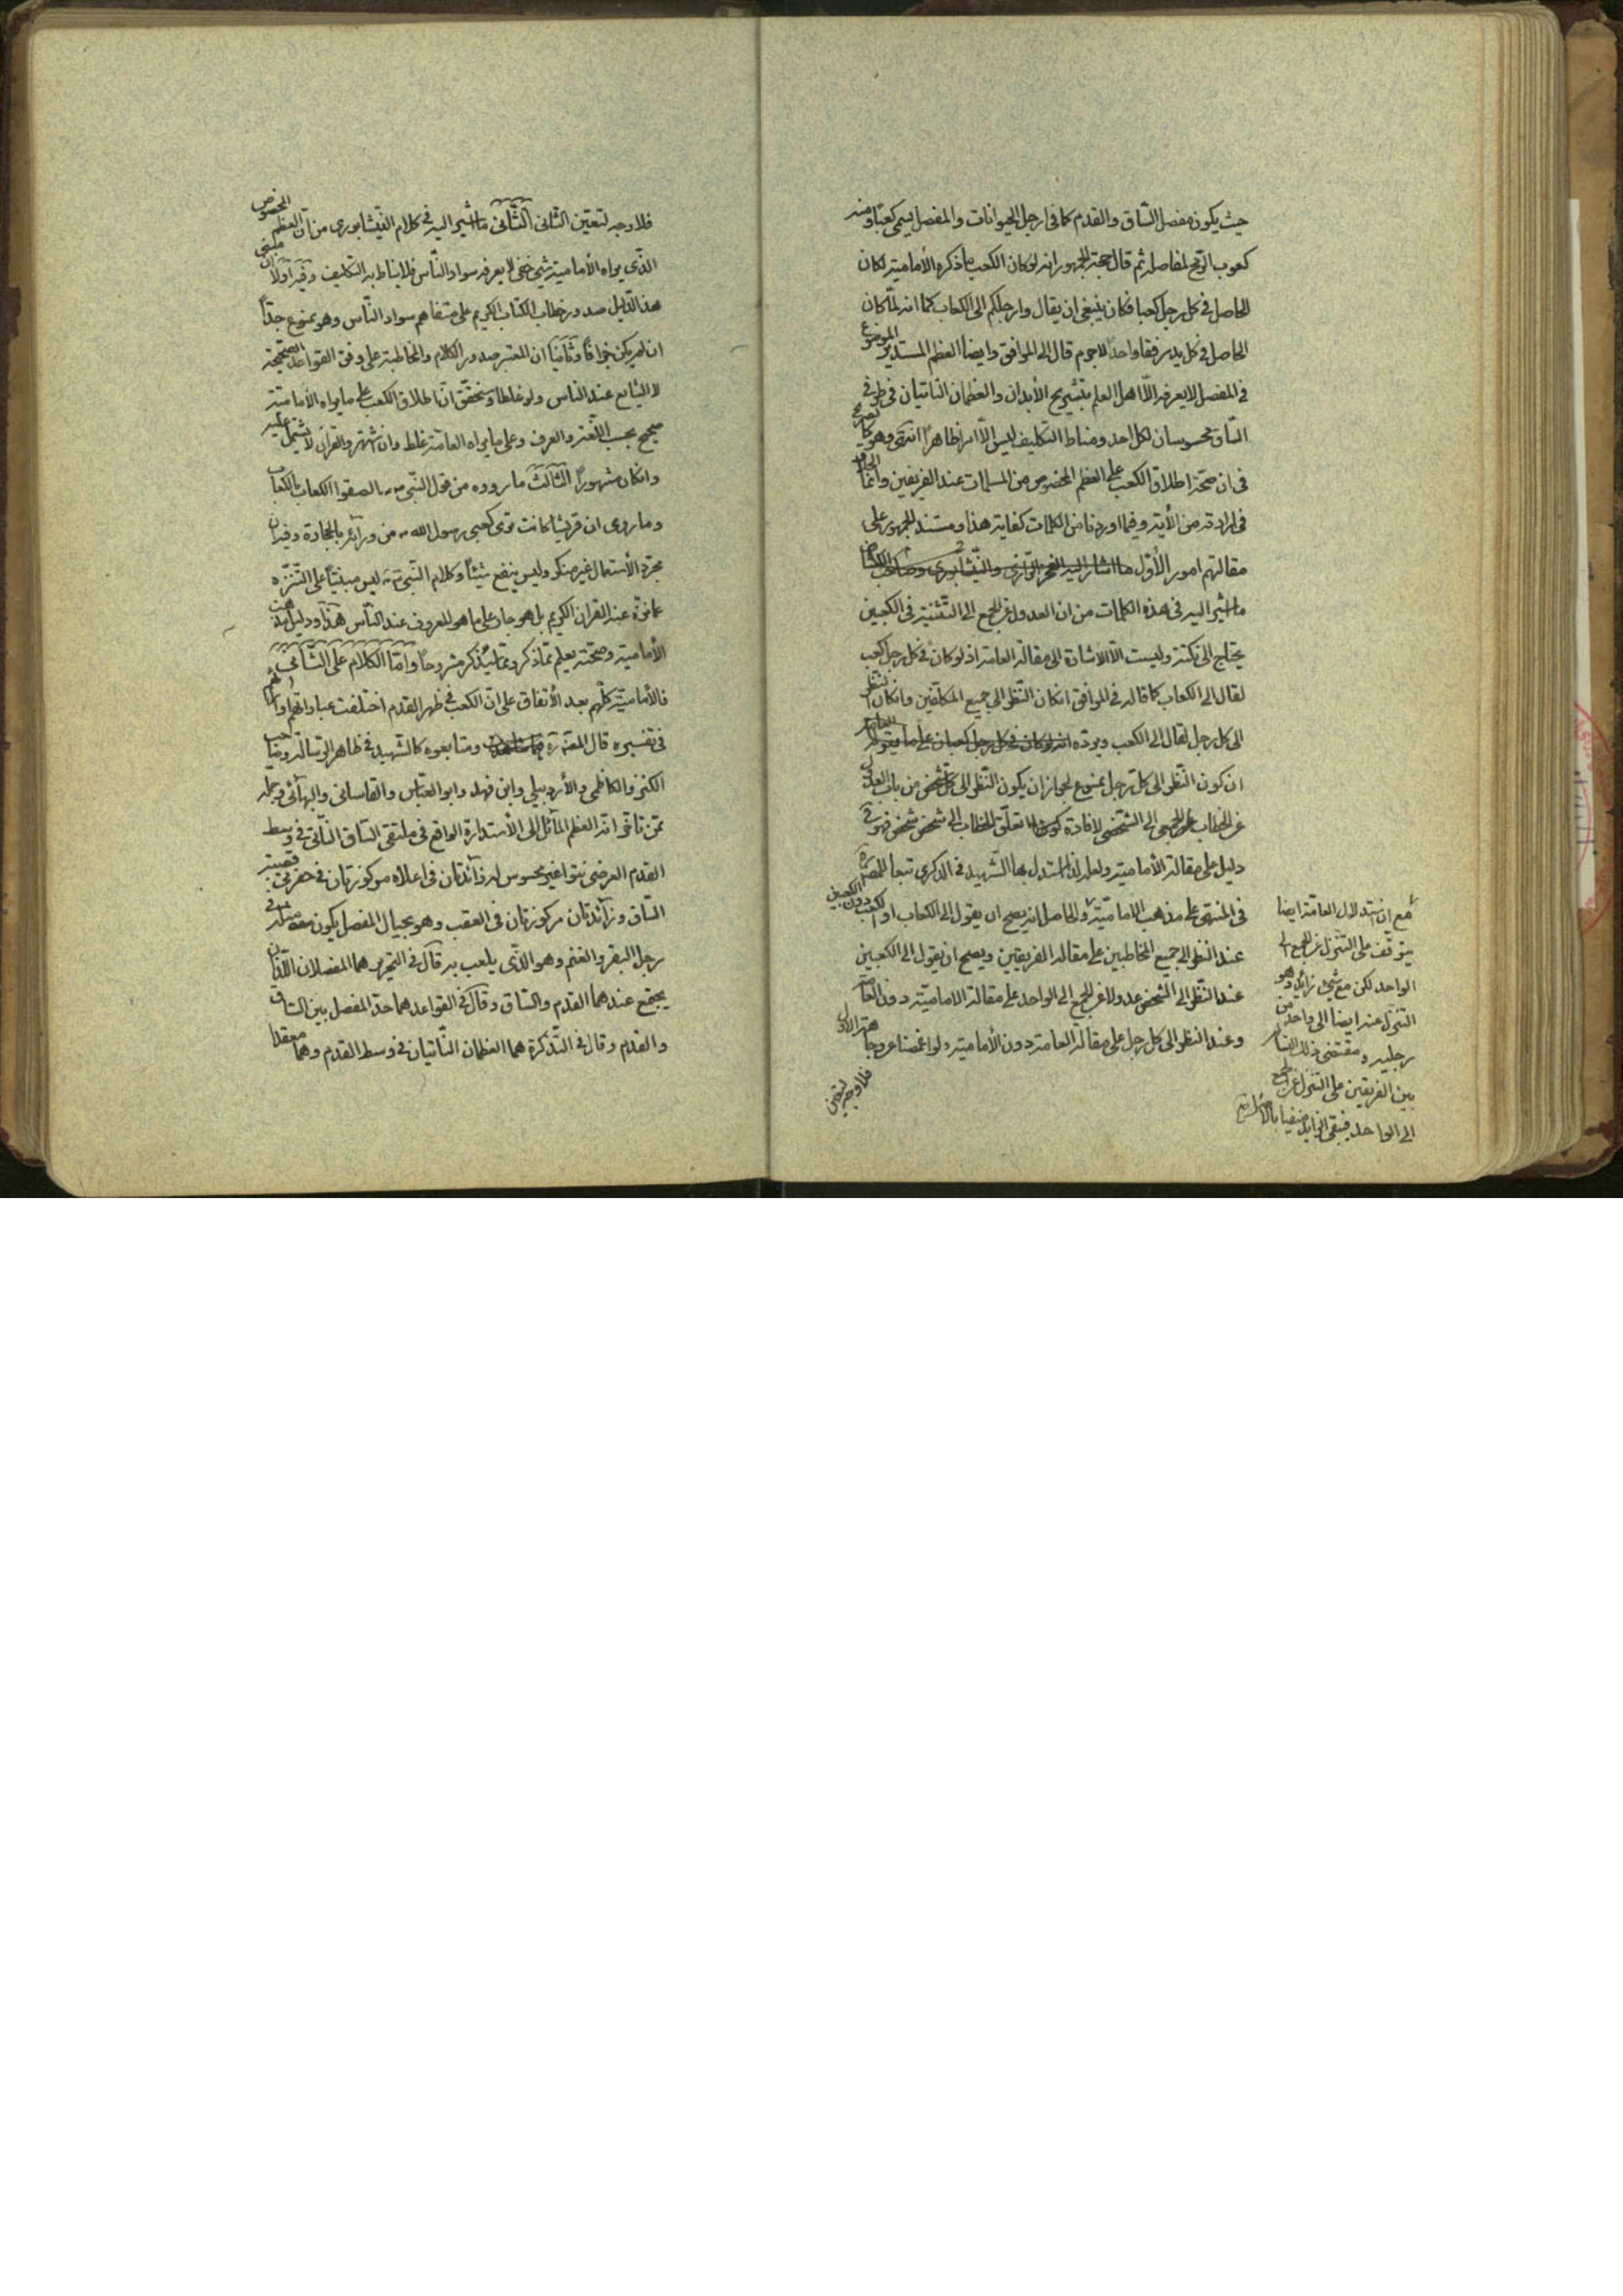 حيث يكون مفصل الساق والقدم كما فى ارجل الحيوانات والمفصل يسمى كعبًا ومنه
كعوب الرمح لمفاصله ثم قال حجة الجمهور انه لو كان الكعب ما ذكره الأمامية لكان
الحاصل فى كل رجل كعبا فكان ينبغى ان يقال وارجلكم الى الكعاب كما انه لما كان
الحاصل فى كل يد مرفقا واحدًا لا جرم قال الى المرافق وايضا العظم المستدير الموضوع
فى المفصل لا يعرفه الا اهل العلم بتشريح الأبدان والعظمان الناتيان فى طرفى
الساق محسوسان لكل احد ومناط التكليف ليس الا امرا ظاهرًا انتهى وهو كما ترى
فى ان صحة اطلاق الكعب على العظم المخصوص من المسلمات عند الفريقين وانما الخلاف
فى ارادته من الأية وفيما اوردنا من الكلمات كفاية هذا ومستند الجمهور على
مقالتهم امور الأول ما اشار اليه الفخر الرازى والنيشابورى وصاحب الكشاف
ما اشير اليه فى هذه الكلمات من ان العدول عن الجمع الى التثنية فى الكعبين
يحتاج الى نكتة وليست الا الأشارة الى مقالة العامة اذ لو كان فى كل رجل كعب
لقال الى الكعاب كما قاله فى المرافق ان كان النظر الى جميع المكلفين وان كان النظر
الى كل رجل لقال الى الكعب ويرده انه لو كان فى كل رجل كعبان على ما يقوله العامة
ان كون النظر الى كل رجل ممنوع لجواز ان يكون النظر الى كل شخص من باب العدول
عن الخطاب الجمعى الى الشخصى لافادة تعلق الخطاب الى شخص شخص فهو فى
دليل على مقالة الأمامية ولعله لذا استدل بها الشهيد فى الذكرى تبعا للمصنف ره
فى المنتهى على مذهب الامامية والحاصل انه يصح ان يقول الى الكعاب او الكعب دون الكعبين
عند النظر الى جميع المخاطبين على مقالة الفريقين ويصح ان يقول الى الكعبين
عند النظر الى الشخص عدولا عن الجمع الى الواحد على مقالة الامامية دون العامة
وعند النظر الى كل رجل على مقالة العامة دون الأمامية ولو اغمضنا عن وجاهة الاول
فلا وجه لتعين
مع ان استدلال العامة ايضا
يتوقف على التنزل عن الجمع الى
الواحد لكن مع شىء زائد وهو
التنزل عنه ايضا الى واحد من
رجليه ومقتضى ذلك
بين الفريقين على التنزل عن الجمع
الى الواحد فيبقى الزايد منفيا بالأصل
فلا وجه لتعين الثانى الثانى ما اشير اليه فى كلام النيشابورى من ان العظم المخصوص
الذى يراه الأمامية شىء خفى لا يعرفه سواد الناس فلا يناط به التكليف وفيه اولًا ان مبنى
هذا الدليل صدور خطاب الكتاب الكريم على متفاهم سواد الناس وهو ممنوع جدًا
ان لم يكن جزافًا وثانيًا ان المعتبر صدور الكلام والمخاطبة على وفق القواعد الصحيحة
لا الشايع عند الناس ولو غلطا وستحقق ان اطلاق الكعب على ما يراه الأمامية
صحيح بحسب اللغة والعرف وعلى ما يراه العامة غلط وان اشتهر والقران لا يشتمل عليه
وان كان مشهورًا الثالث ما رووه من قول النبى ص الصقوا الكعاب بالكعاب
وما روى ان قريشا كانت ترمى كعبى رسول الله ص من ورائه بالحجارة وفيه ان
مجرد الأستعمال غير منكر وليس ينفع شيئًا وكلام النبى ص ليس مبنيًا على التنزه
عما نزه عنه القران الكريم بل هو جار على ما هو المعروف عند الناس هذا ودليل مذهب
الأمامية وصحته يعلم مما ذكر ومما سيذكر مشروحا واما الكلام على الثانى
فالأمامية كلهم بعد الأتفاق على ان الكعب فى ظهر القدم اختلفت عباراتهم واراءهم
فى تفسيره قال المصنف ره ومتابعوه كالشهيد فى ظاهر الرسالة وصاحب
الكنز والكاظمى والأردبيلى وابن فهد وابو العباس والقاسانى والبهائى وجملة
ممن تأخر انه العظم المائل الى الأستدارة الواقع فى ملتقى الساق الناتى فى وسط
القدم العرضى نتوا غير محسوس له زائدتان فى اعلاه مركوزتان فى حفرتى قصبة
الساق وزائدتان مركوزتان فى العقب وهو بحيال المفصل يكون مثله فى
رجل البقر والغنم وهو الذى يلعب به قال فى التحرير هما المفصلان اللذان
يجتمع عندهما القدم والساق وقال فى القواعد هما حد المفصل بين الساق
والقدم وقال فى التذكرة هما العظمان الناتيان فى وسط القدم وهما معقد